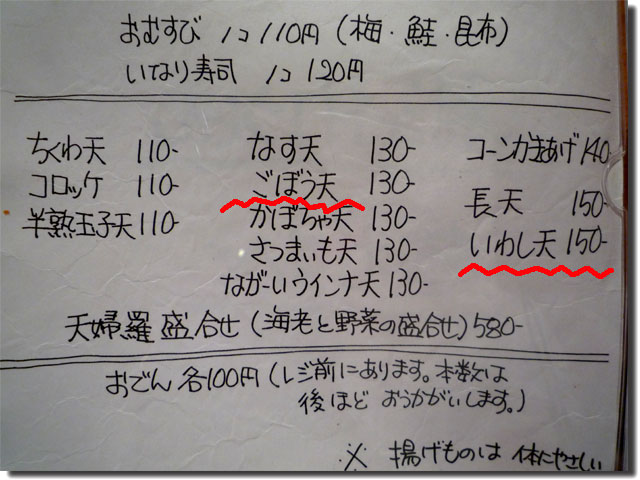 おむすび 1コ 110円 (梅・鮭・昆布)
いなり寿司 1コ 120円
ちくわ天 110-
コロッケ 110-
半熟玉子天 110-
なす天 130-
ごぼう天 130-
かぼちゃ天 130-
さつまいも天 130-
ながーいウインナ天 130-
コーンかきあげ 140
長天 150-
いわし天 150-
天婦羅盛合せ (海老と野菜の盛合せ) 580-
おでん 各100円 (レジ前にあります。本数は
後ほど おうかがいします。)
※ 揚げものは 体にやさしい